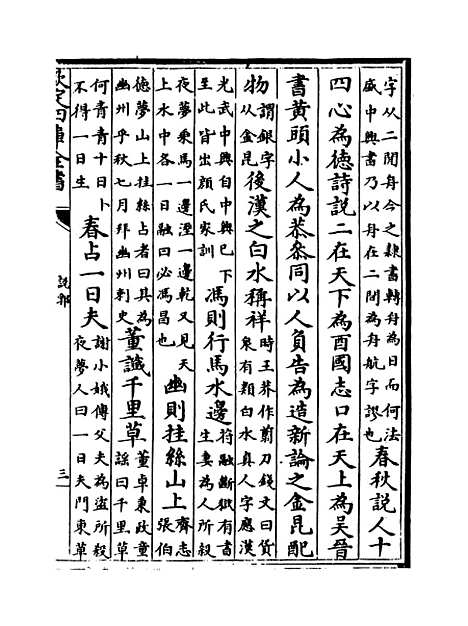 字从二閒舟今之隸書轉舟為日而何法
盛中興書乃以舟在二閒為舟航字謬也
春秋說人十
四心為徳詩說二在天下為酉國志口在天上為吳晉
書黄頭小人為恭叅同以人負告為造新論之金昆配
物
謂銀字
从金昆
後漢之白水稱祥
時王莽作剪刀錢文曰貨
泉有類白水真人字應漢
光武中興自中興已下
至此皆出顔氏家訓
馮則行馬水邊
符融斷獄有書
生妻為人所殺
夜夢乘馬一邊溼一邊乾又見天
上水中各一日融曰必馮昌也
幽則挂絲山上
齊志
張伯
徳夢山上挂絲占者曰其為
幽州乎秋七月拜幽州刺史
董讖千里草
董卓秉政童
謡曰千里草
何青青十日卜
不得一日生
春占一日夫
謝小娥傳父夫為盜所殺
夜夢人曰一日夫門東草
欽定四庫全書
說郛
三